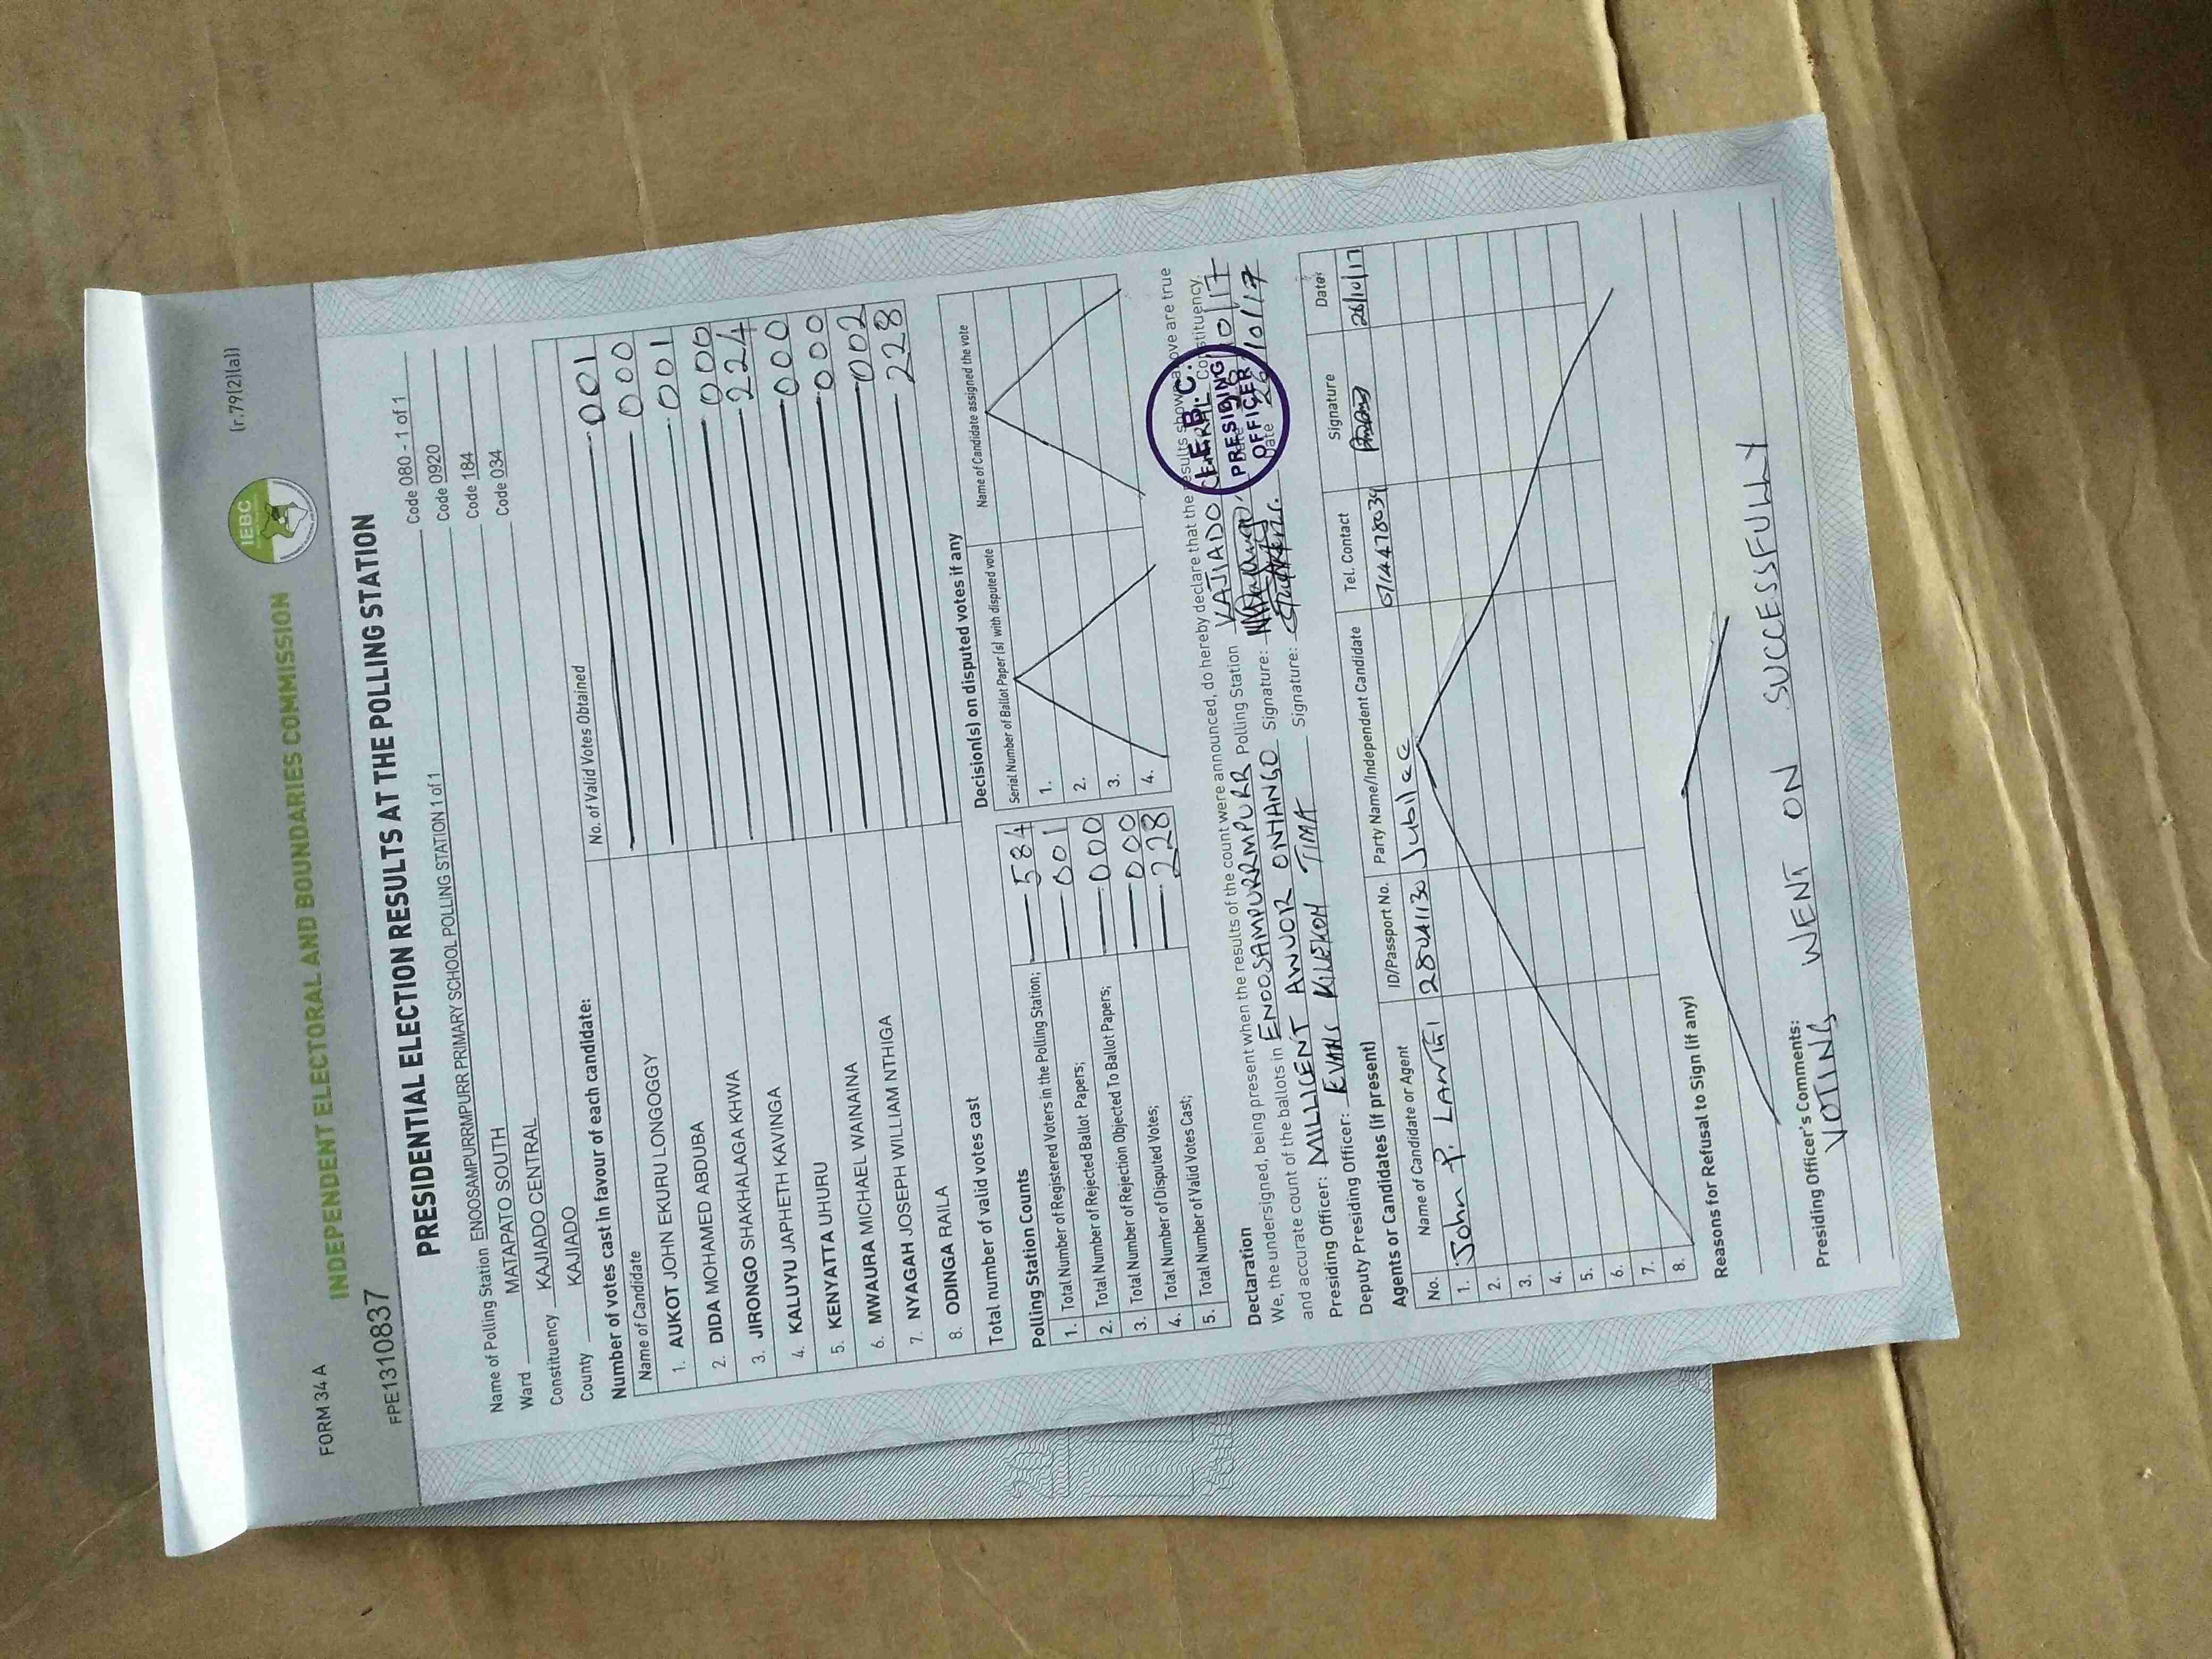 FORM 34 A
(r.79(2)(a))
IEBC
INDEPENDENT ELECTORAL AND BOUNDARIES COMMISSION
FPE1310837
PRESIDENTIAL ELECTION RESULTS AT THE POLLING STATION
Name of Polling Station ENOOSAMPURRMPURR PRIMARY SCHOOL POLLING STATION 1 of 1 Code 080 - 1 of 1
Ward MATAPATO SOUTH Code 0920
Constituency KAJIADO CENTRAL Code 184
County KAJIADO Code 034
Number of votes cast in favour of each candidate:
Name of Candidate No. of Valid Votes Obtained
1. AUKOT JOHN EKURU LONGOGGY 001
2. DIDA MOHAMED ABDUBA 000
3. JIRONGO SHAKHALAGA KHWA 001
4. KALUYU JAPHETH KAVINGA 000
5. KENYATTA UHURU 224
6. MWAURA MICHAEL WAINAINA 000
7. NYAGAH JOSEPH WILLIAM NTHIGA 000
8. ODINGA RAILA 002
Total number of valid votes cast 228
Polling Station Counts
1. Total Number of Registered Voters in the Polling Station; 584
2. Total Number of Rejected Ballot Papers; 001
3. Total Number of Rejection Objected To Ballot Papers; 000
4. Total Number of Disputed Votes; 000
5. Total Number of Valid Votes Cast; 228
Decision(s) on disputed votes if any
Serial Number of Ballot Paper(s) with disputed vote Name of Candidate assigned the vote
1.
2.
3.
4.
Declaration
We, the undersigned, being present when the results of the count were announced, do hereby declare that the results shown above are true
and accurate count of the ballots in ENOOSAMPURRMPURR Polling Station KAJIADO CENTRAL Constituency.
Presiding Officer: MILLICENT AWUOR ONYANGO Signature: Date 26/10/17
Deputy Presiding Officer: EVANS KILEKON TIMA Signature: Date 26/10/17
I.E.B.C.
PRESIDING
OFFICER
Agents or Candidates (If present)
No. Name of Candidate or Agent ID/Passport No. Party Name/Independent Candidate Tel. Contact Signature Date:
1. John P. 28041130 Jubilee 0714478034 26/10/17
2.
3.
4.
5.
6.
7.
8.
Reasons for Refusal to Sign (if any)
Presiding Officer's Comments:
VOTING WENT ON SUCCESSFULLY